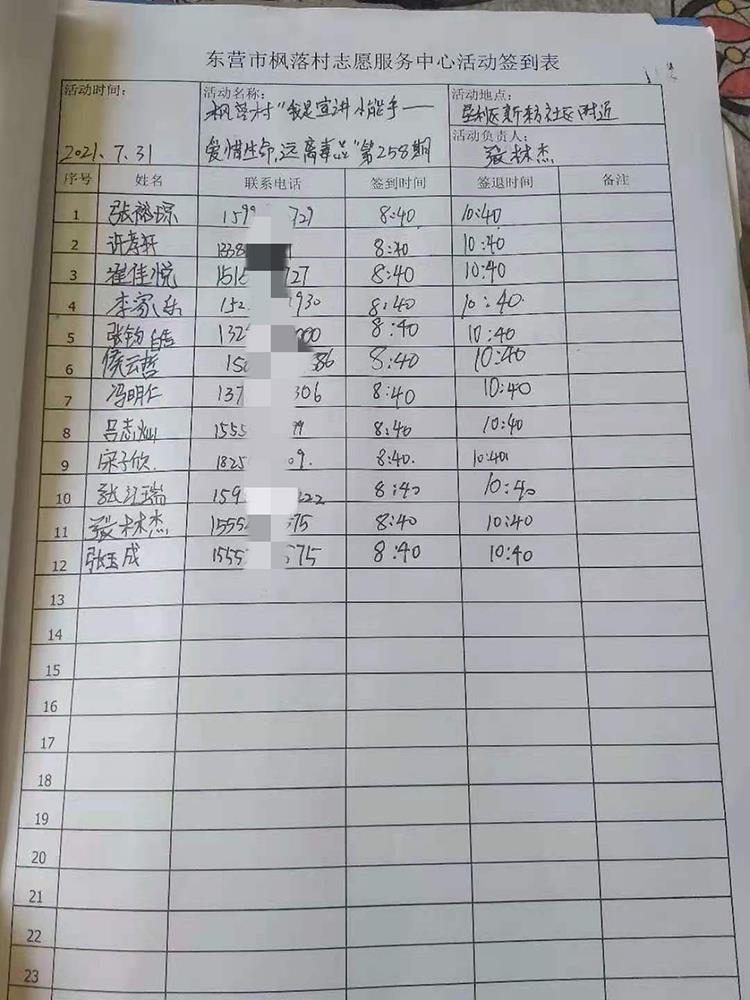 东营市枫落村志愿服务中心活动签到表
活动时间: 活动名称: 活动地点:
枫落村"我是宣讲小能手—— 垦利区新村社区附近
活动负责人:
2021.7.31 爱惜生命,远离毒品"第258期 张林杰
序号 姓名 联系电话 签到时间 签退时间 备注
1 张裕琼 1599 729 8:40 10:40
2 许孝轩 1338 8:40 10:40
3 崔佳悦 1516 727 8:40 10:40
4 李家乐 152 930 8:40 10:40
5 张钧皓 132 000 8:40 10:40
6 侯云哲 150 86 8:40 10:40
7 冯明仁 137 306 8:40 10:40
8 吕志灿 1555 99 8:40 10:40
9 宋子欣 1825 09 8:40 10:40
10 张江瑞 159 222 8:40 10:40
11 张林杰 1555 575 8:40 10:40
12 张玉成 1555 575 8:40 10:40
13
14
15
16
17
18
19
20
21
22
23